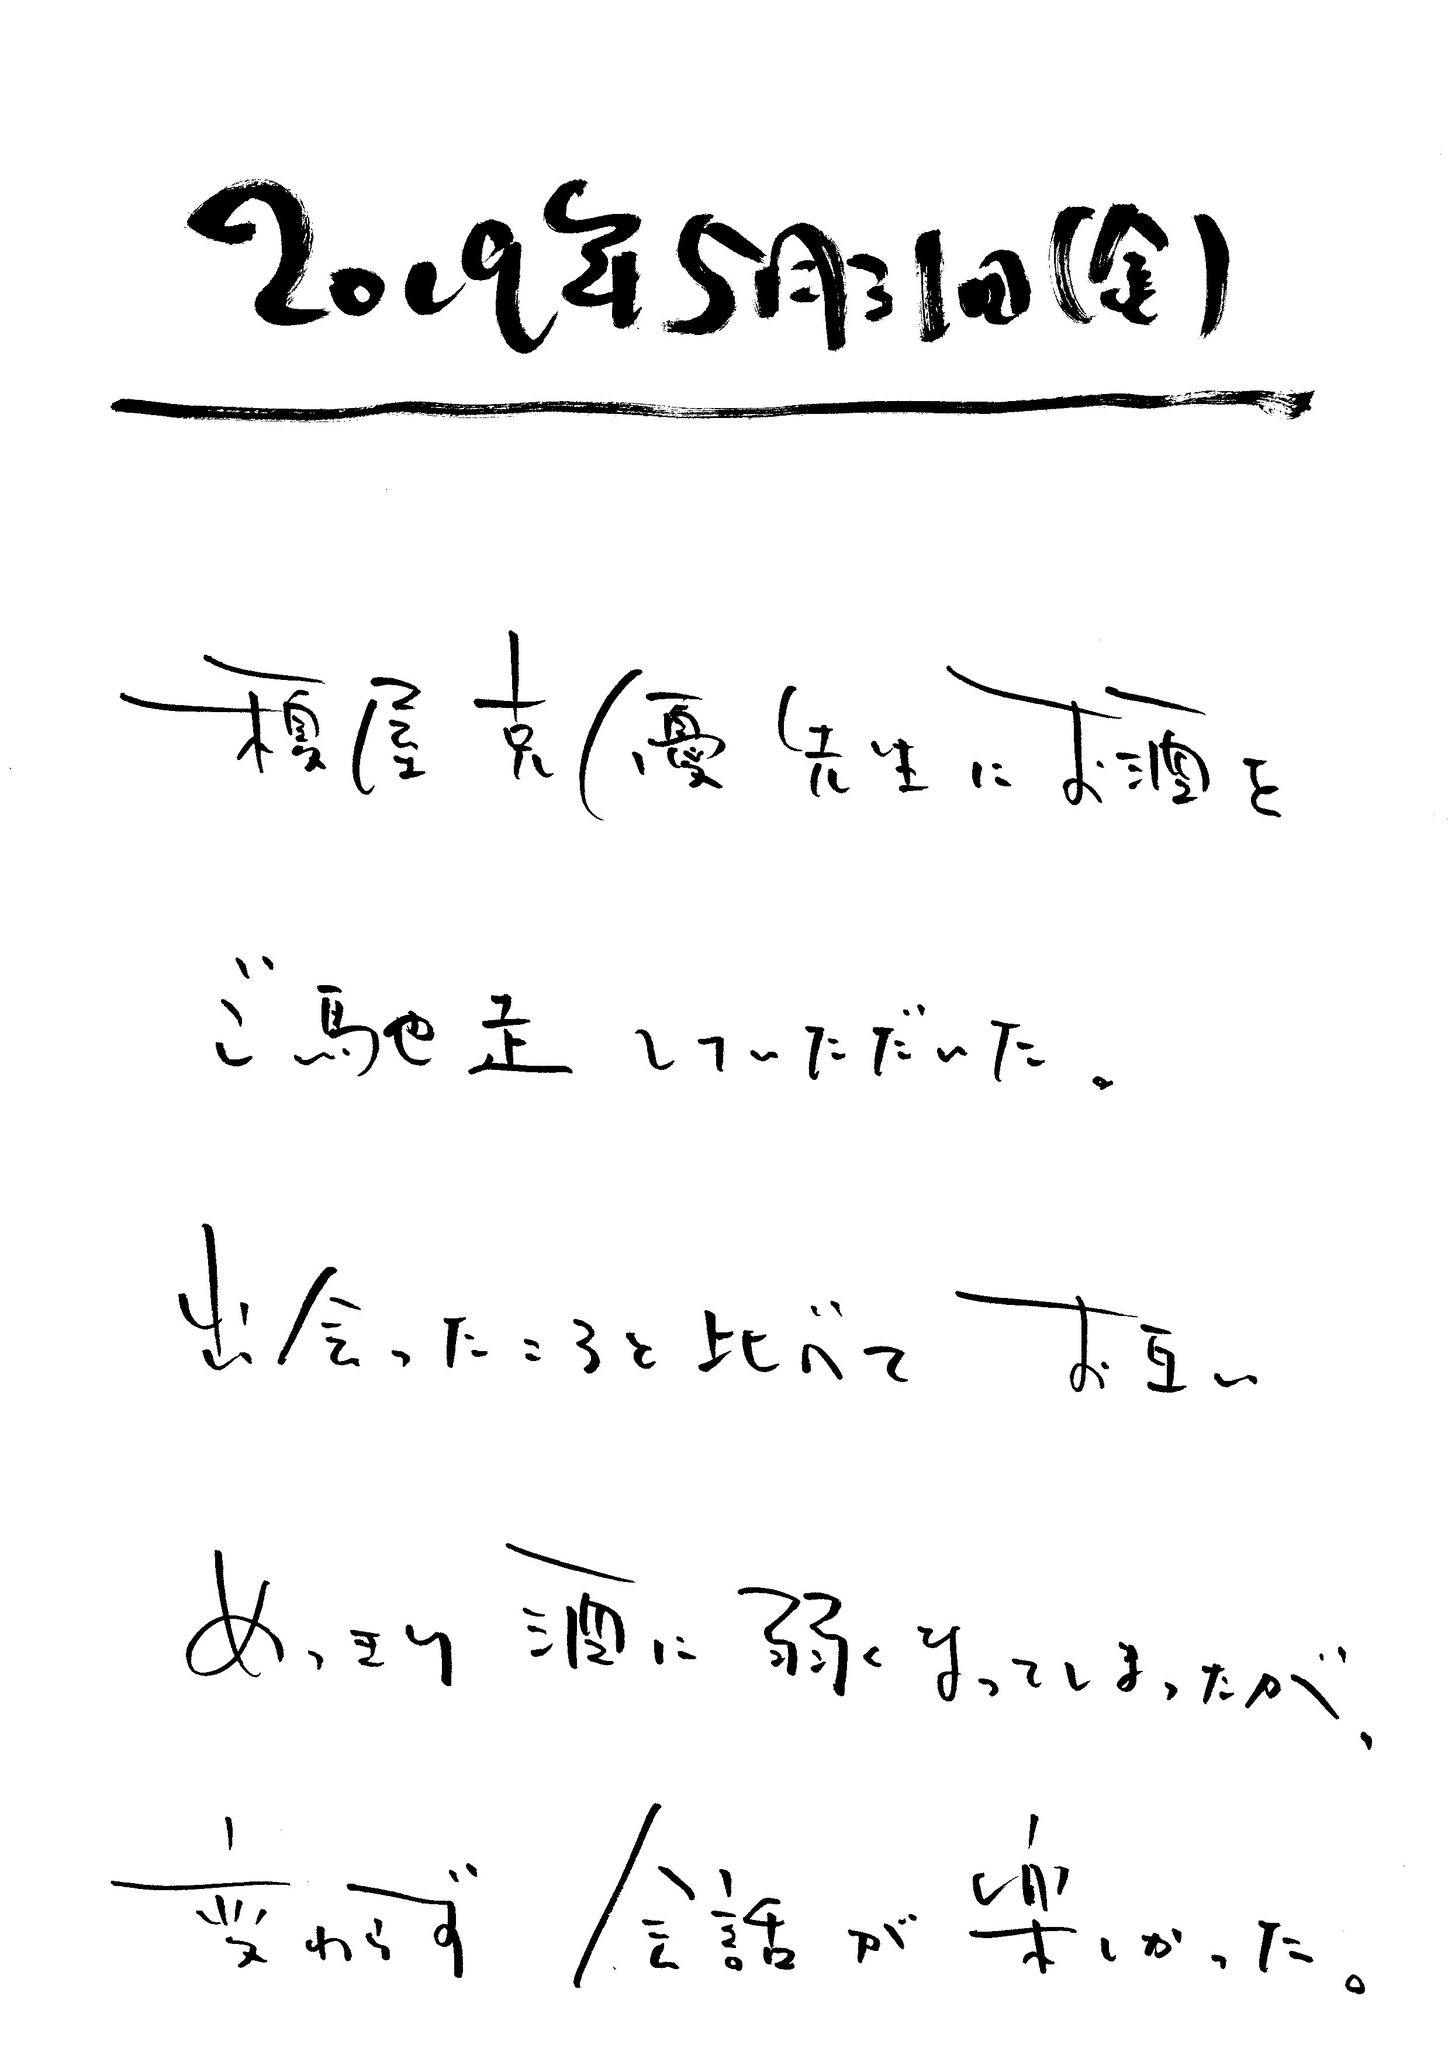 2019年5月31日(金)
榎屋克優先生にお酒を
ご馳走していただいた。
出会ったころと比べてお互い
めっきり酒に弱くなってしまったが、
変わらず会話が楽しかった。